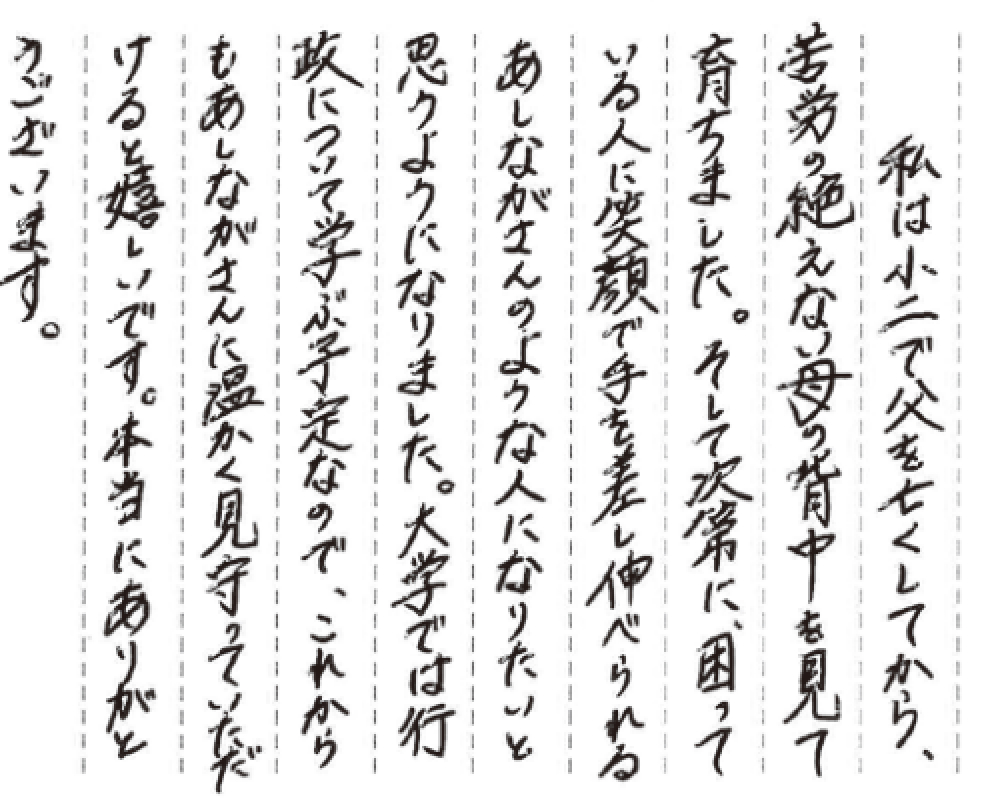 私は小二で父を亡くしてから、
苦労の絶えない母の背中を見て
育ちました。そして次第に、困って
いる人に笑顔で手を差し伸べられる
あしながさんのような人になりたいと
思うようになりました。大学では行
政について学ぶ予定なので、これから
もあしながさんに温かく見守っていただ
けると嬉しいです。本当にありがと
うございます。